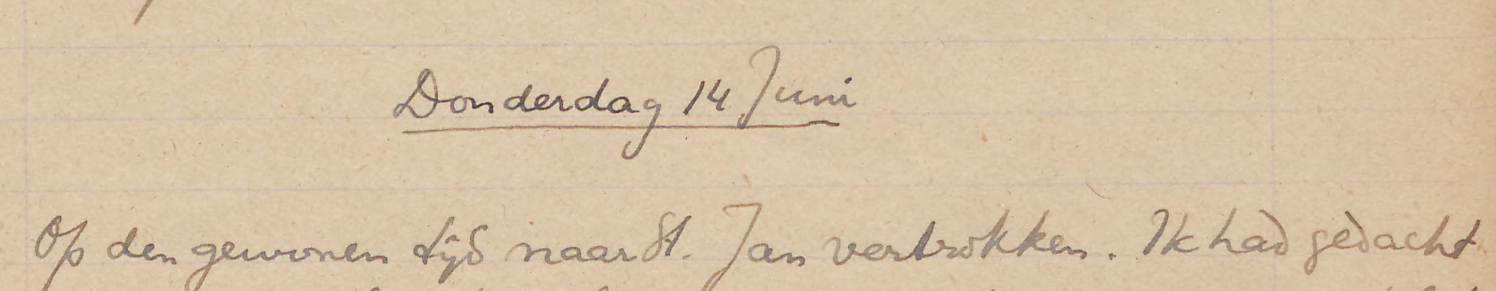 Donderdag 14 Juni
Op den gewonen tijd naar St. Jan vertrokken. Ik had gedacht